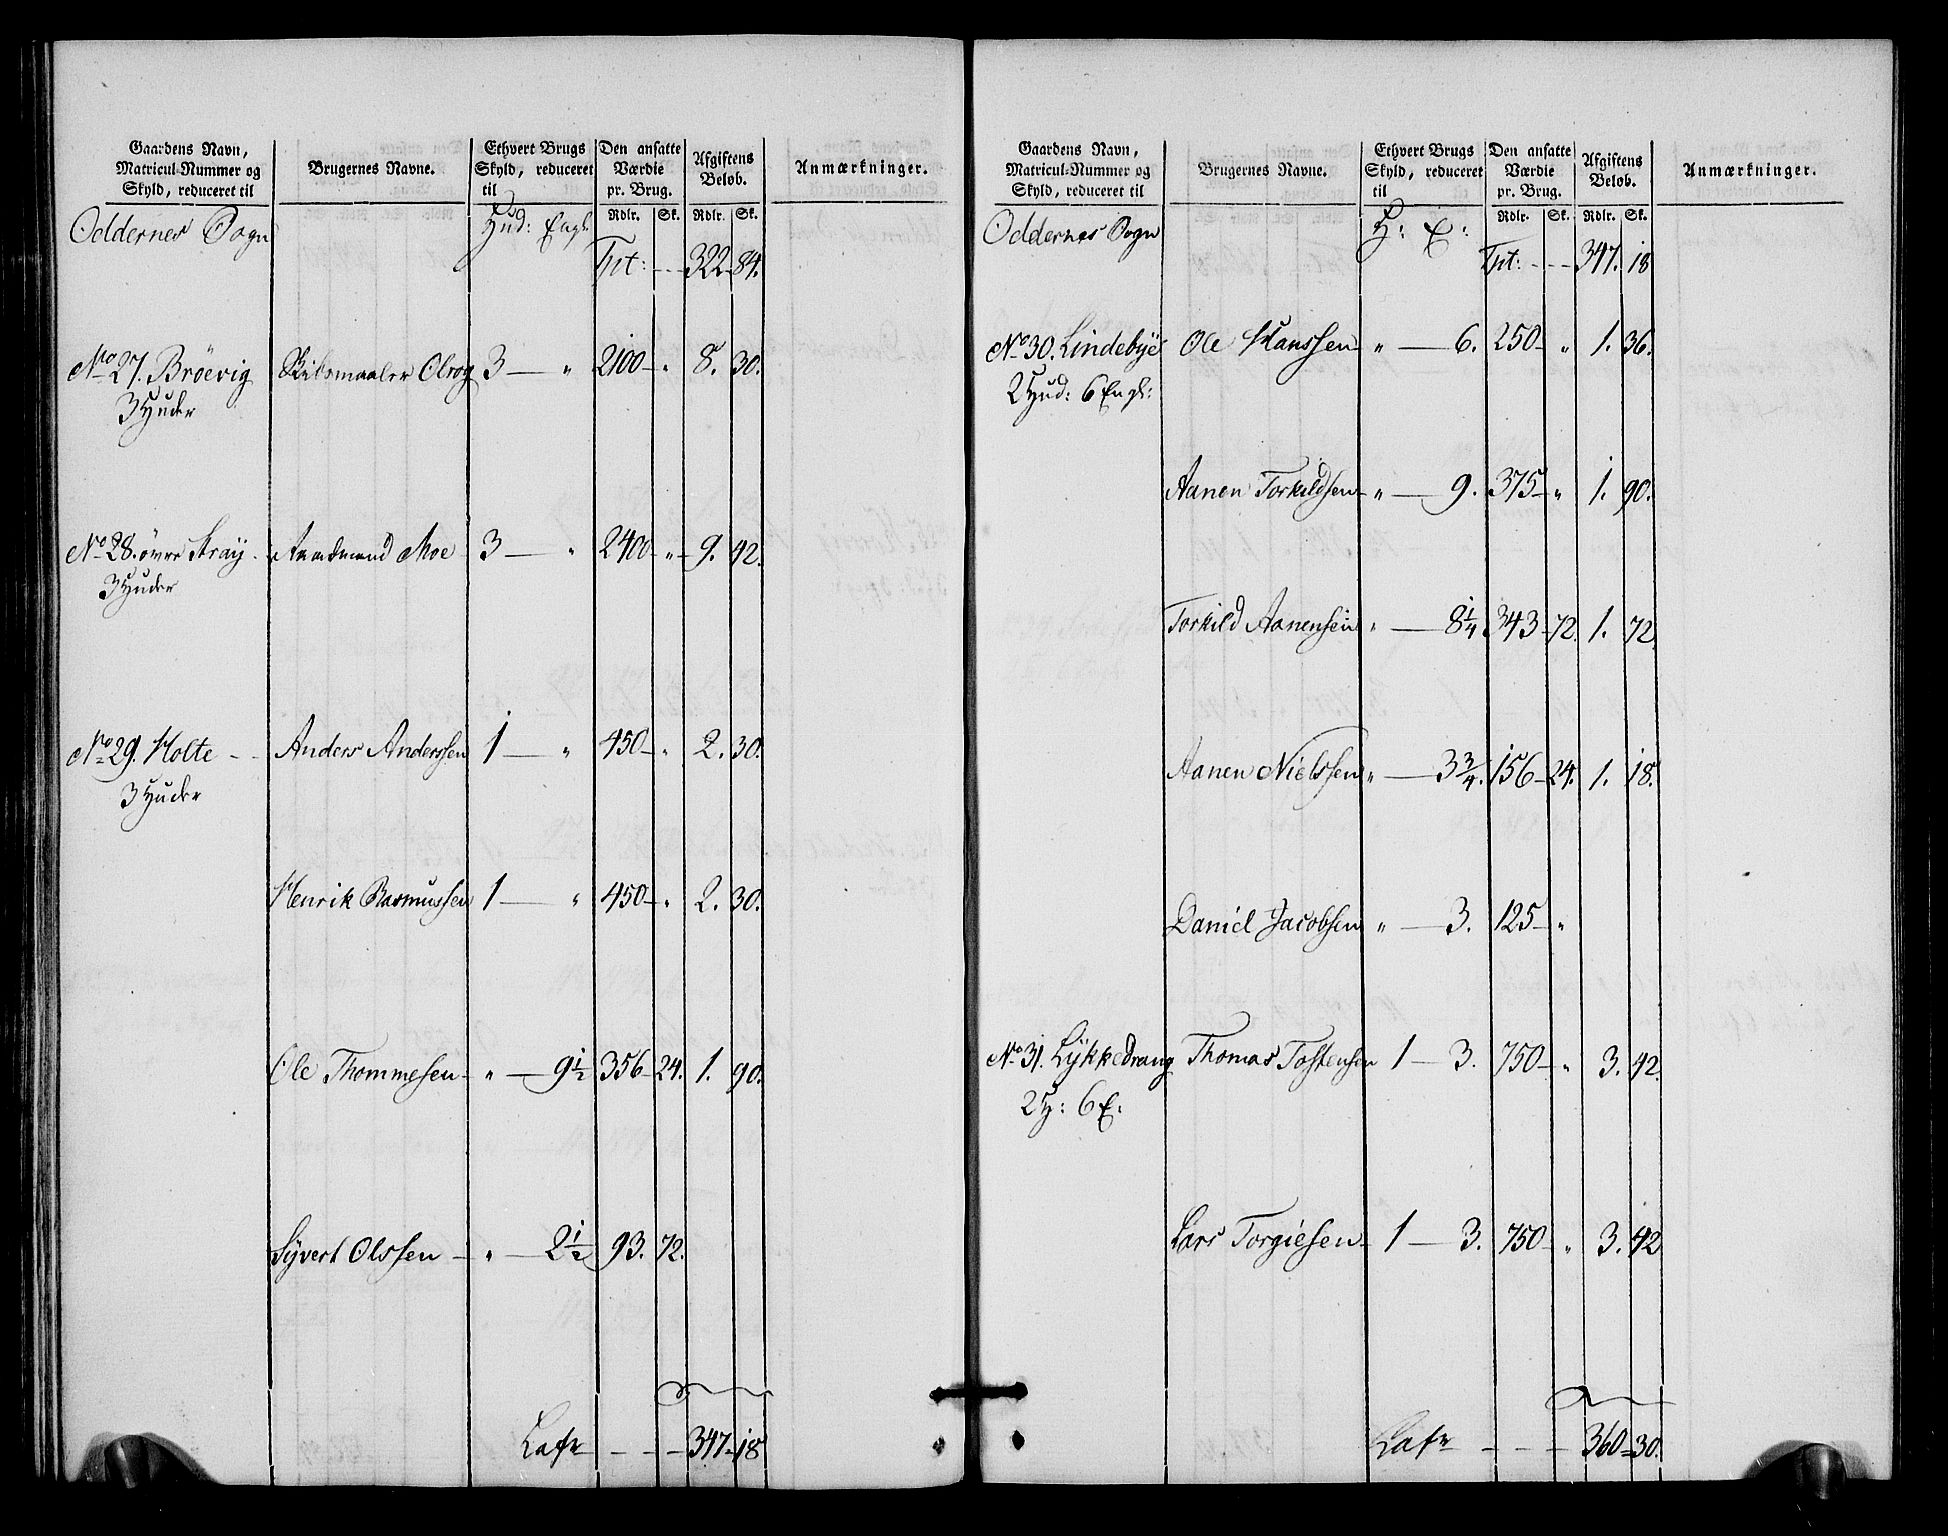 Gaardens Navn, Matricul-Nummer og Skyld, reduceret til | Brugernes Navne. | Ethvert Brugs Skyld, reduceret til | Den ansatte Værdie pr. Brug. | Afgiftens Beløb. | Anmærkninger.
Rdlr. Sk. Rdlr. Sk.
Oddernes Sogn Hud: Engl:
Tpt: --- 322 - 84.
No 27. Brøevig Olrog 3 — " 2100 - " 8. 30.
3 Huder
No 28. øvre Stray - Aaadmand Moe 3 — " 2400 - " - 9. 42.
3 Huder
No 29. Holte - - Anders Anderssen 1 — " 450 - " 2. 30.
3 Huder
Henrik Rasmussen 1 — " 450 - " 2. 30.
Ole Thommesen - " — 9 1/2 356 - 24. 1. 90.
Syvert Olssen - " — 2 1/2 93. 72.
Latr - - - 347 - 18
Gaardens Navn, Matricul-Nummer og Skyld, reduceret til | Brugernes Navne. | Ethvert Brugs Skyld, reduceret til | Den ansatte Værdie pr. Brug. | Afgiftens Beløb. | Anmærkninger.
Rdlr. Sk. Rdlr. Sk.
Oddernes Sogn H: E:
Tpt: --- 347. 18
No 30. Lindebye Ole Hanssen - " — 6. 250 - " 1. 36.
2 Hud: 6 Engl:
Aanen Torkildsen - " — 9. 375 - " 1. 90.
Torkild Aanensen " — 8 1/4 343 - 72. 1. 72
Aanen Nielssen " — 3 3/4. 156 - 24. 1. 18.
Daniel Jacobsen " — 3. 125 - "
No 31. Lykkedrang Thomas Tostensen 1 — 3. 750 - " 3. 42.
2 H: 6 E:
Lars Torgiesen - 1 — 3. 750 - " 3. 42
Latr - - - 360 - 30.